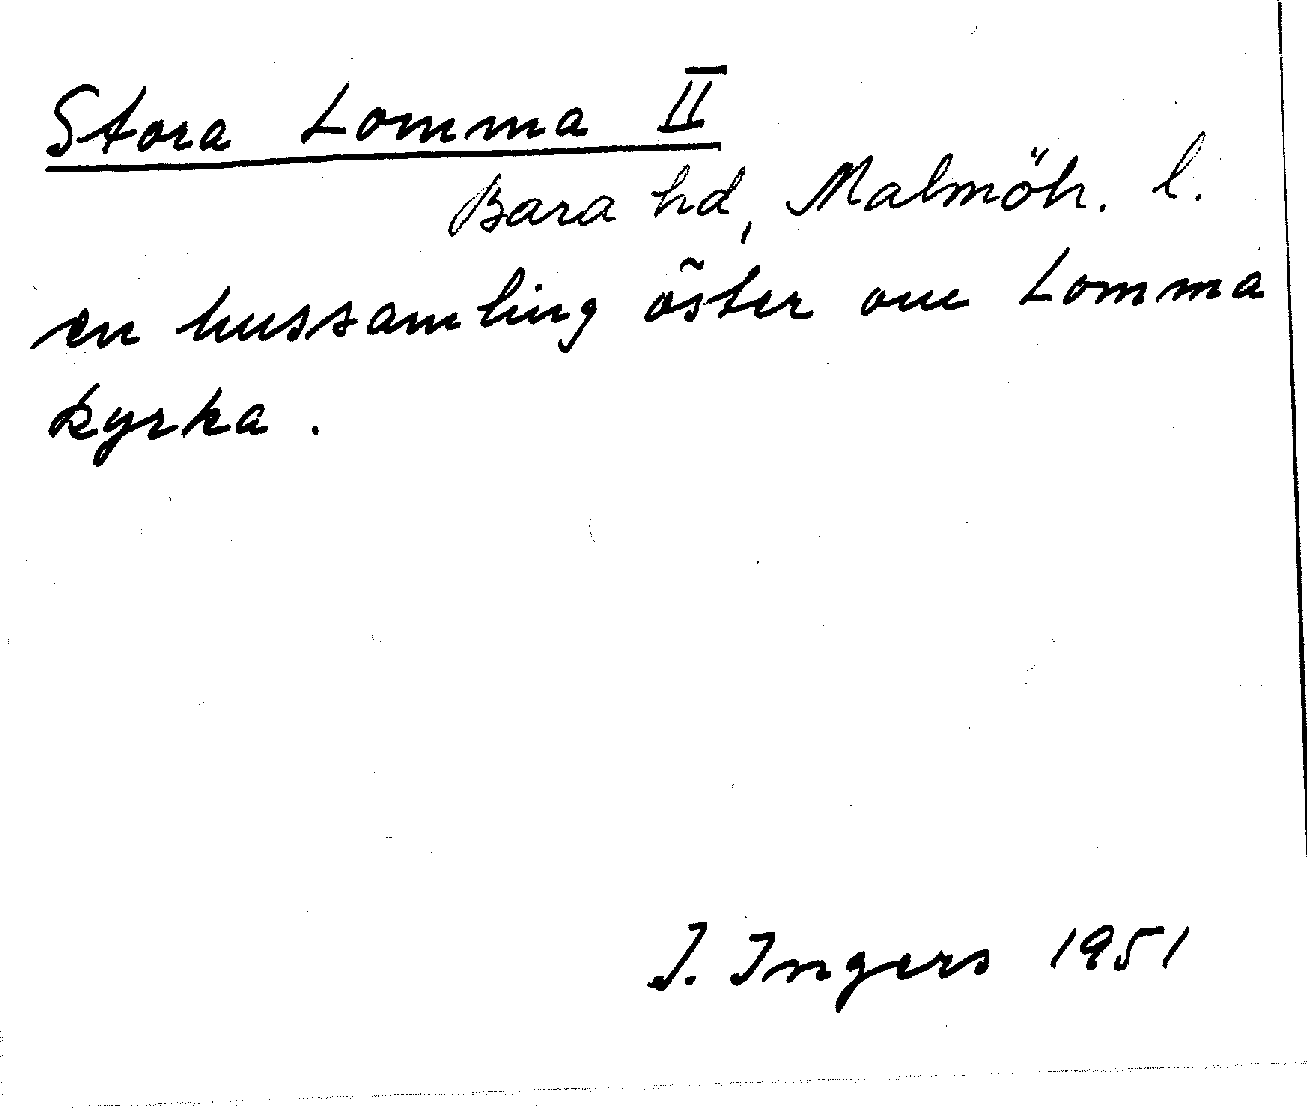 Stora Lomma II
Bara hd, Malmöh. l.
en hussamling öster om Lomma
kyrka.
I. Ingers 1951